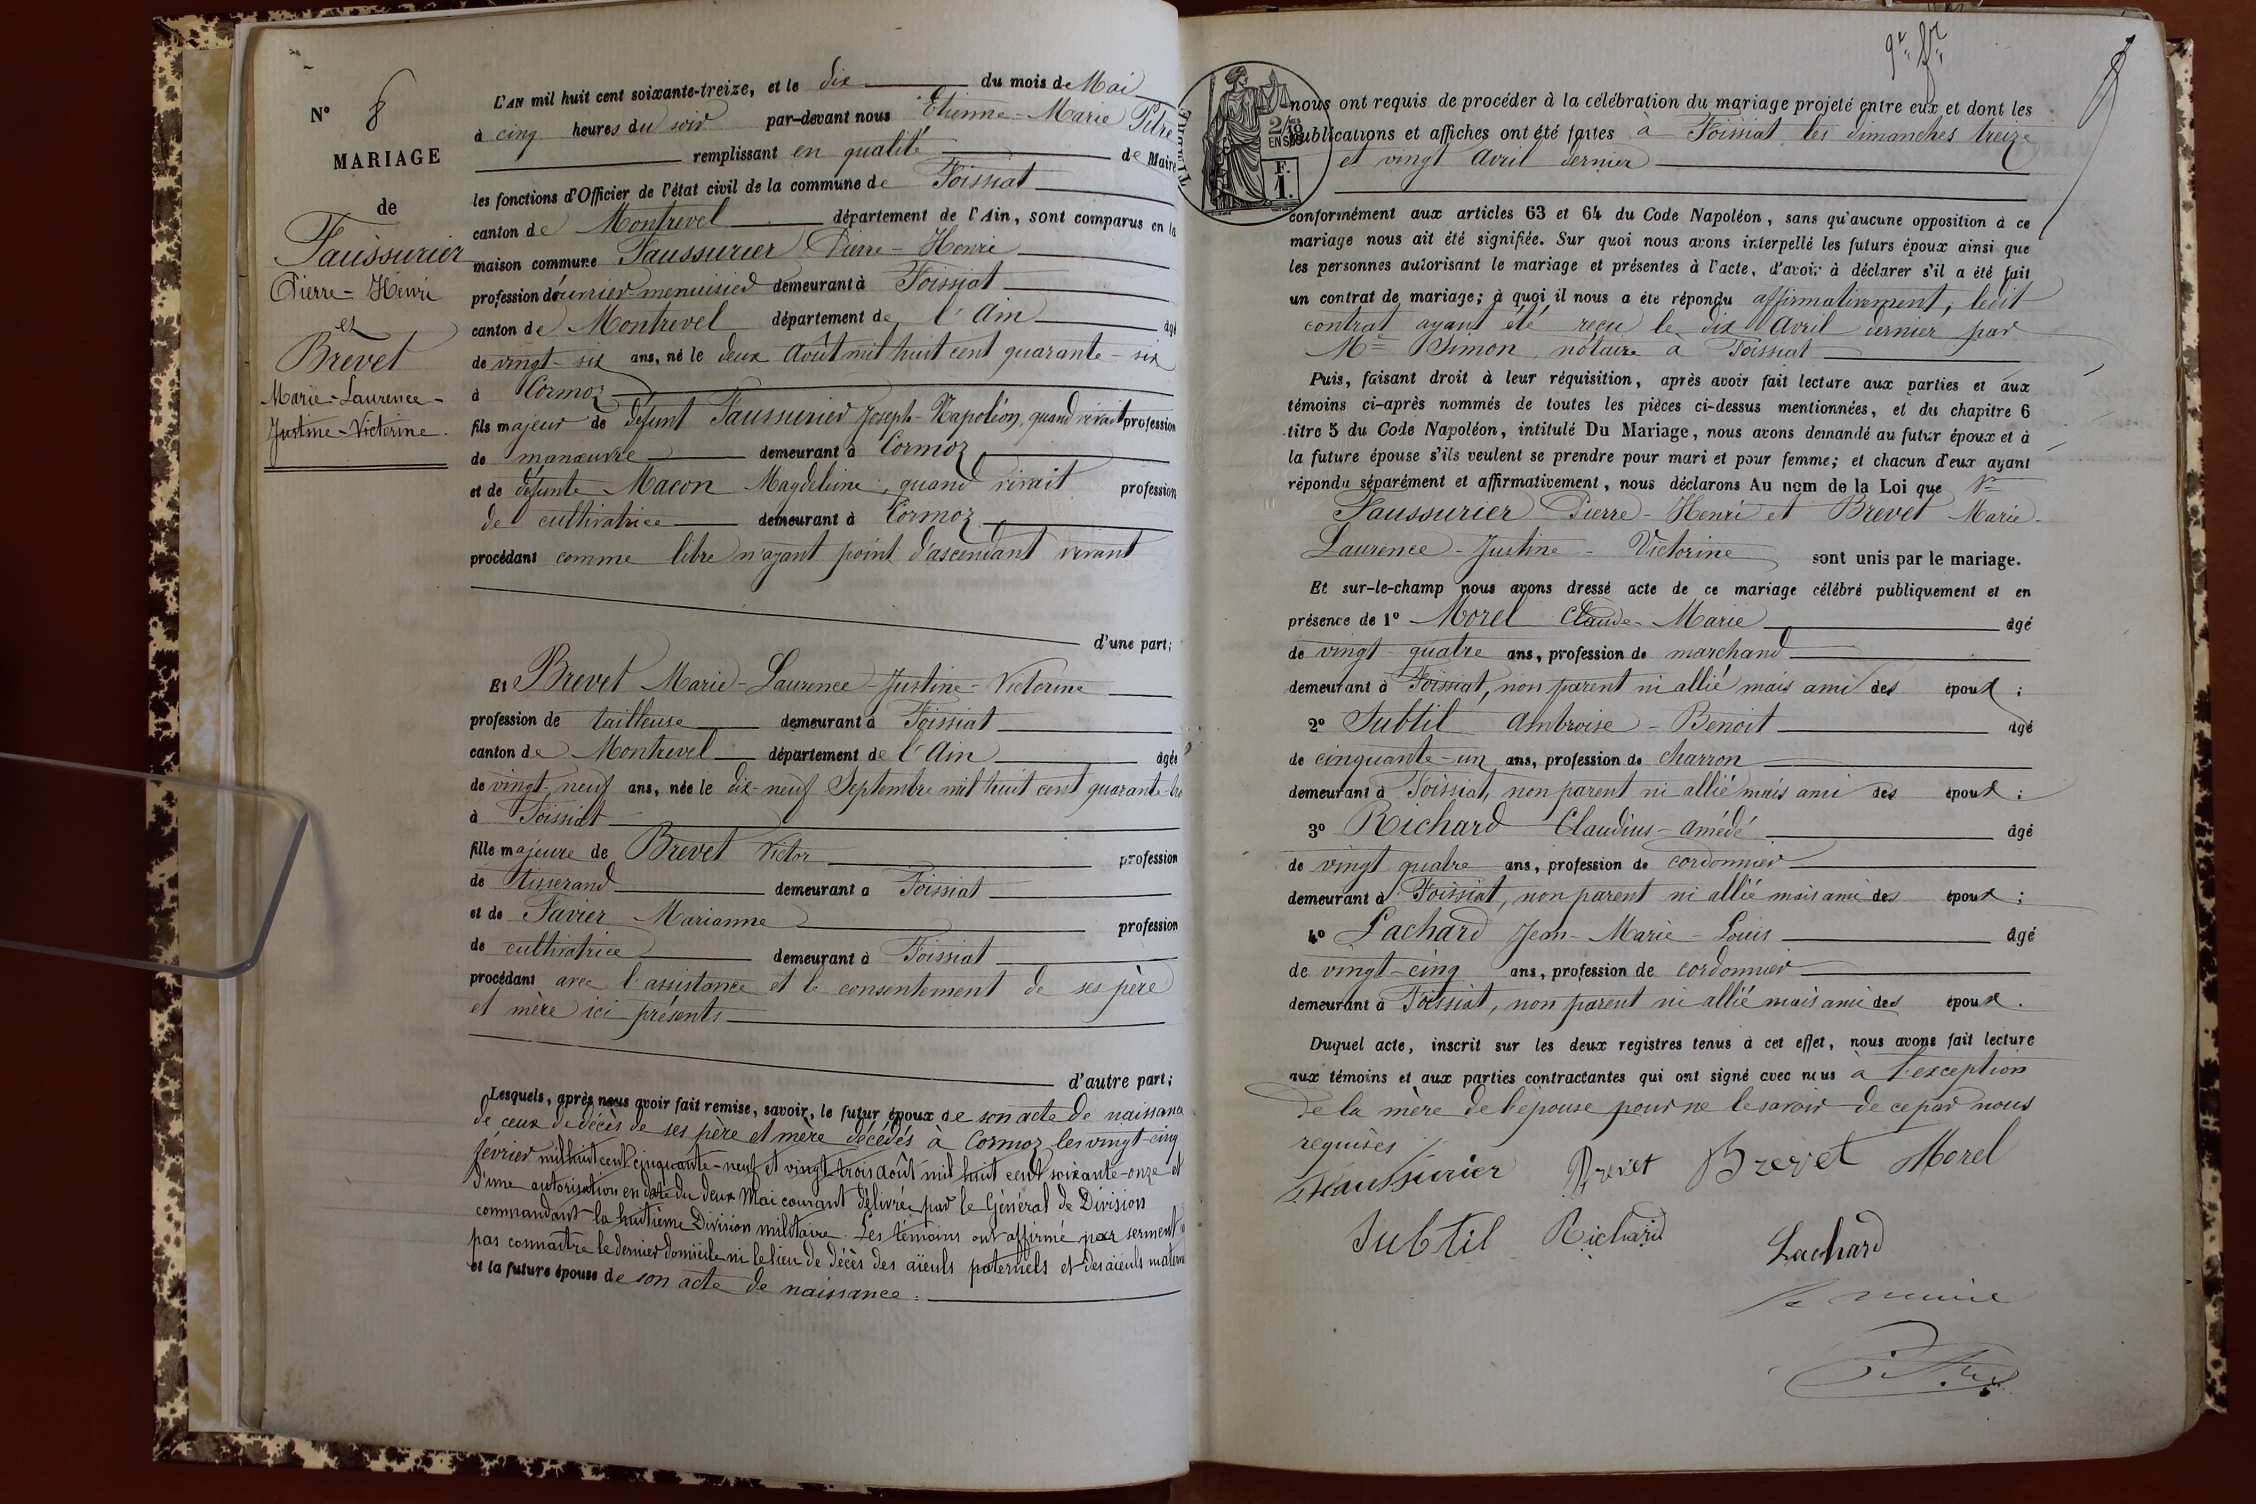 N° 8
MARIAGE
de
Faussurier
Pierre - Henri
et
Brevet
Marie - Laurence -
Justine - Victorine
L'AN mil huit cent soixante-treize, et le dix du mois de Mai
à cinq heures du soir par-devant nous Etienne - Marie Pitre
remplissant en qualité de Maire
les fonctions d'Officier de l'état civil de la commune de Foissiat
canton de Montrevel département de l'Ain, sont comparus en la
maison commune Faussurier Pierre - Henri
profession d'ouvrier menuisier demeurant à Foissiat
canton de Montrevel département de l'Ain âgé
de vingt-six ans, né le deux Août mil huit cent quarante - six
à Cormoz
fils majeur de défunt Faussurier Joseph - Napoléon, quand vivait profession
de manœuvre demeurant à Cormoz
et de défunte Macon Magdeleine, quand vivait profession
de cultivatrice demeurant à Cormoz
procédant comme libre n'ayant point d'ascendant vivant
d'une part;
Et Brevet Marie - Laurence - Justine - Victorine
profession de tailleuse demeurant à Foissiat
canton de Montrevel département de l'Ain âgée
de vingt-neuf ans, née le dix-neuf Septembre mil huit cent quarante-
à Foissiat
fille majeure de Brevet Victor profession
de tisserand demeurant à Foissiat
et de Favier Marianne profession
de cultivatrice demeurant à Foissiat
procédant avec l'assistance et le consentement de ses père
et mère ici présents
d'autre part;
Lesquels, après nous avoir fait remise, savoir, le futur époux de son acte de naissance
de ceux de décès de ses père et mère décédés à Cormoz les vingt-cinq
février mil huit cent cinquante-neuf et vingt-trois août mil huit cent soixante-onze et
d'une autorisation en date du deux Mai courant délivrée par le Général de Division
commandant la huitième Division militaire. Les témoins ont affirmé par serment
pas connaître le dernier domicile ni le lieu de décès des aïeuls paternels et des aïeuls
et la future épouse de son acte de naissance.
2/10 EN SUS
F.
1.
nous ont requis de procéder à la célébration du mariage projeté entre eux et dont les
publications et affiches ont été faites à Foissiat les dimanches treize
et vingt Avril dernier
conformément aux articles 63 et 64 du Code Napoléon, sans qu'aucune opposition à ce
mariage nous ait été signifiée. Sur quoi nous avons interpellé les futurs époux ainsi que
les personnes autorisant le mariage et présentes à l'acte, d'avoir à déclarer s'il a été fait
un contrat de mariage; à quoi il nous a été répondu affirmativement, ledit
contrat ayant été reçu le dix Avril dernier par
Me Simon notaire à Foissiat
Puis, faisant droit à leur réquisition, après avoir fait lecture aux parties et aux
témoins ci-après nommés de toutes les pièces ci-dessus mentionnées, et du chapitre 6
titre 5 du Code Napoléon, intitulé Du Mariage, nous avons demandé au futur époux et à
la future épouse s'ils veulent se prendre pour mari et pour femme; et chacun d'eux ayant
répondu séparément et affirmativement, nous déclarons Au nom de la Loi que
Faussurier Pierre - Henri et Brevet Marie -
Laurence - Justine - Victorine sont unis par le mariage.
Et sur-le-champ nous avons dressé acte de ce mariage célébré publiquement et en
présence de 1° Morel Claude - Marie âgé
de vingt - quatre ans, profession de marchand
demeurant à Foissiat, non parent ni allié mais ami des époux;
2° Subtil Ambroise - Benoit âgé
de cinquante-un ans, profession de charron
demeurant à Foissiat, non parent ni allié mais ami des époux;
3° Richard Claudius - Amédé âgé
de vingt quatre ans, profession de cordonnier
demeurant à Foissiat, non parent ni allié mais ami des époux;
4° Lachard Jean - Marie - Louis âgé
de vingt-cinq ans, profession de cordonnier
demeurant à Foissiat, non parent ni allié mais ami des époux.
Duquel acte, inscrit sur les deux registres tenus à cet effet, nous avons fait lecture
aux témoins et aux parties contractantes qui ont signé avec nous à l'exception
de la mère de l'épouse pour ne le savoir de ce par nous
requises
Faussurier Brevet Brevet Morel
Subtil Richard Lachard
le maire
Pitre